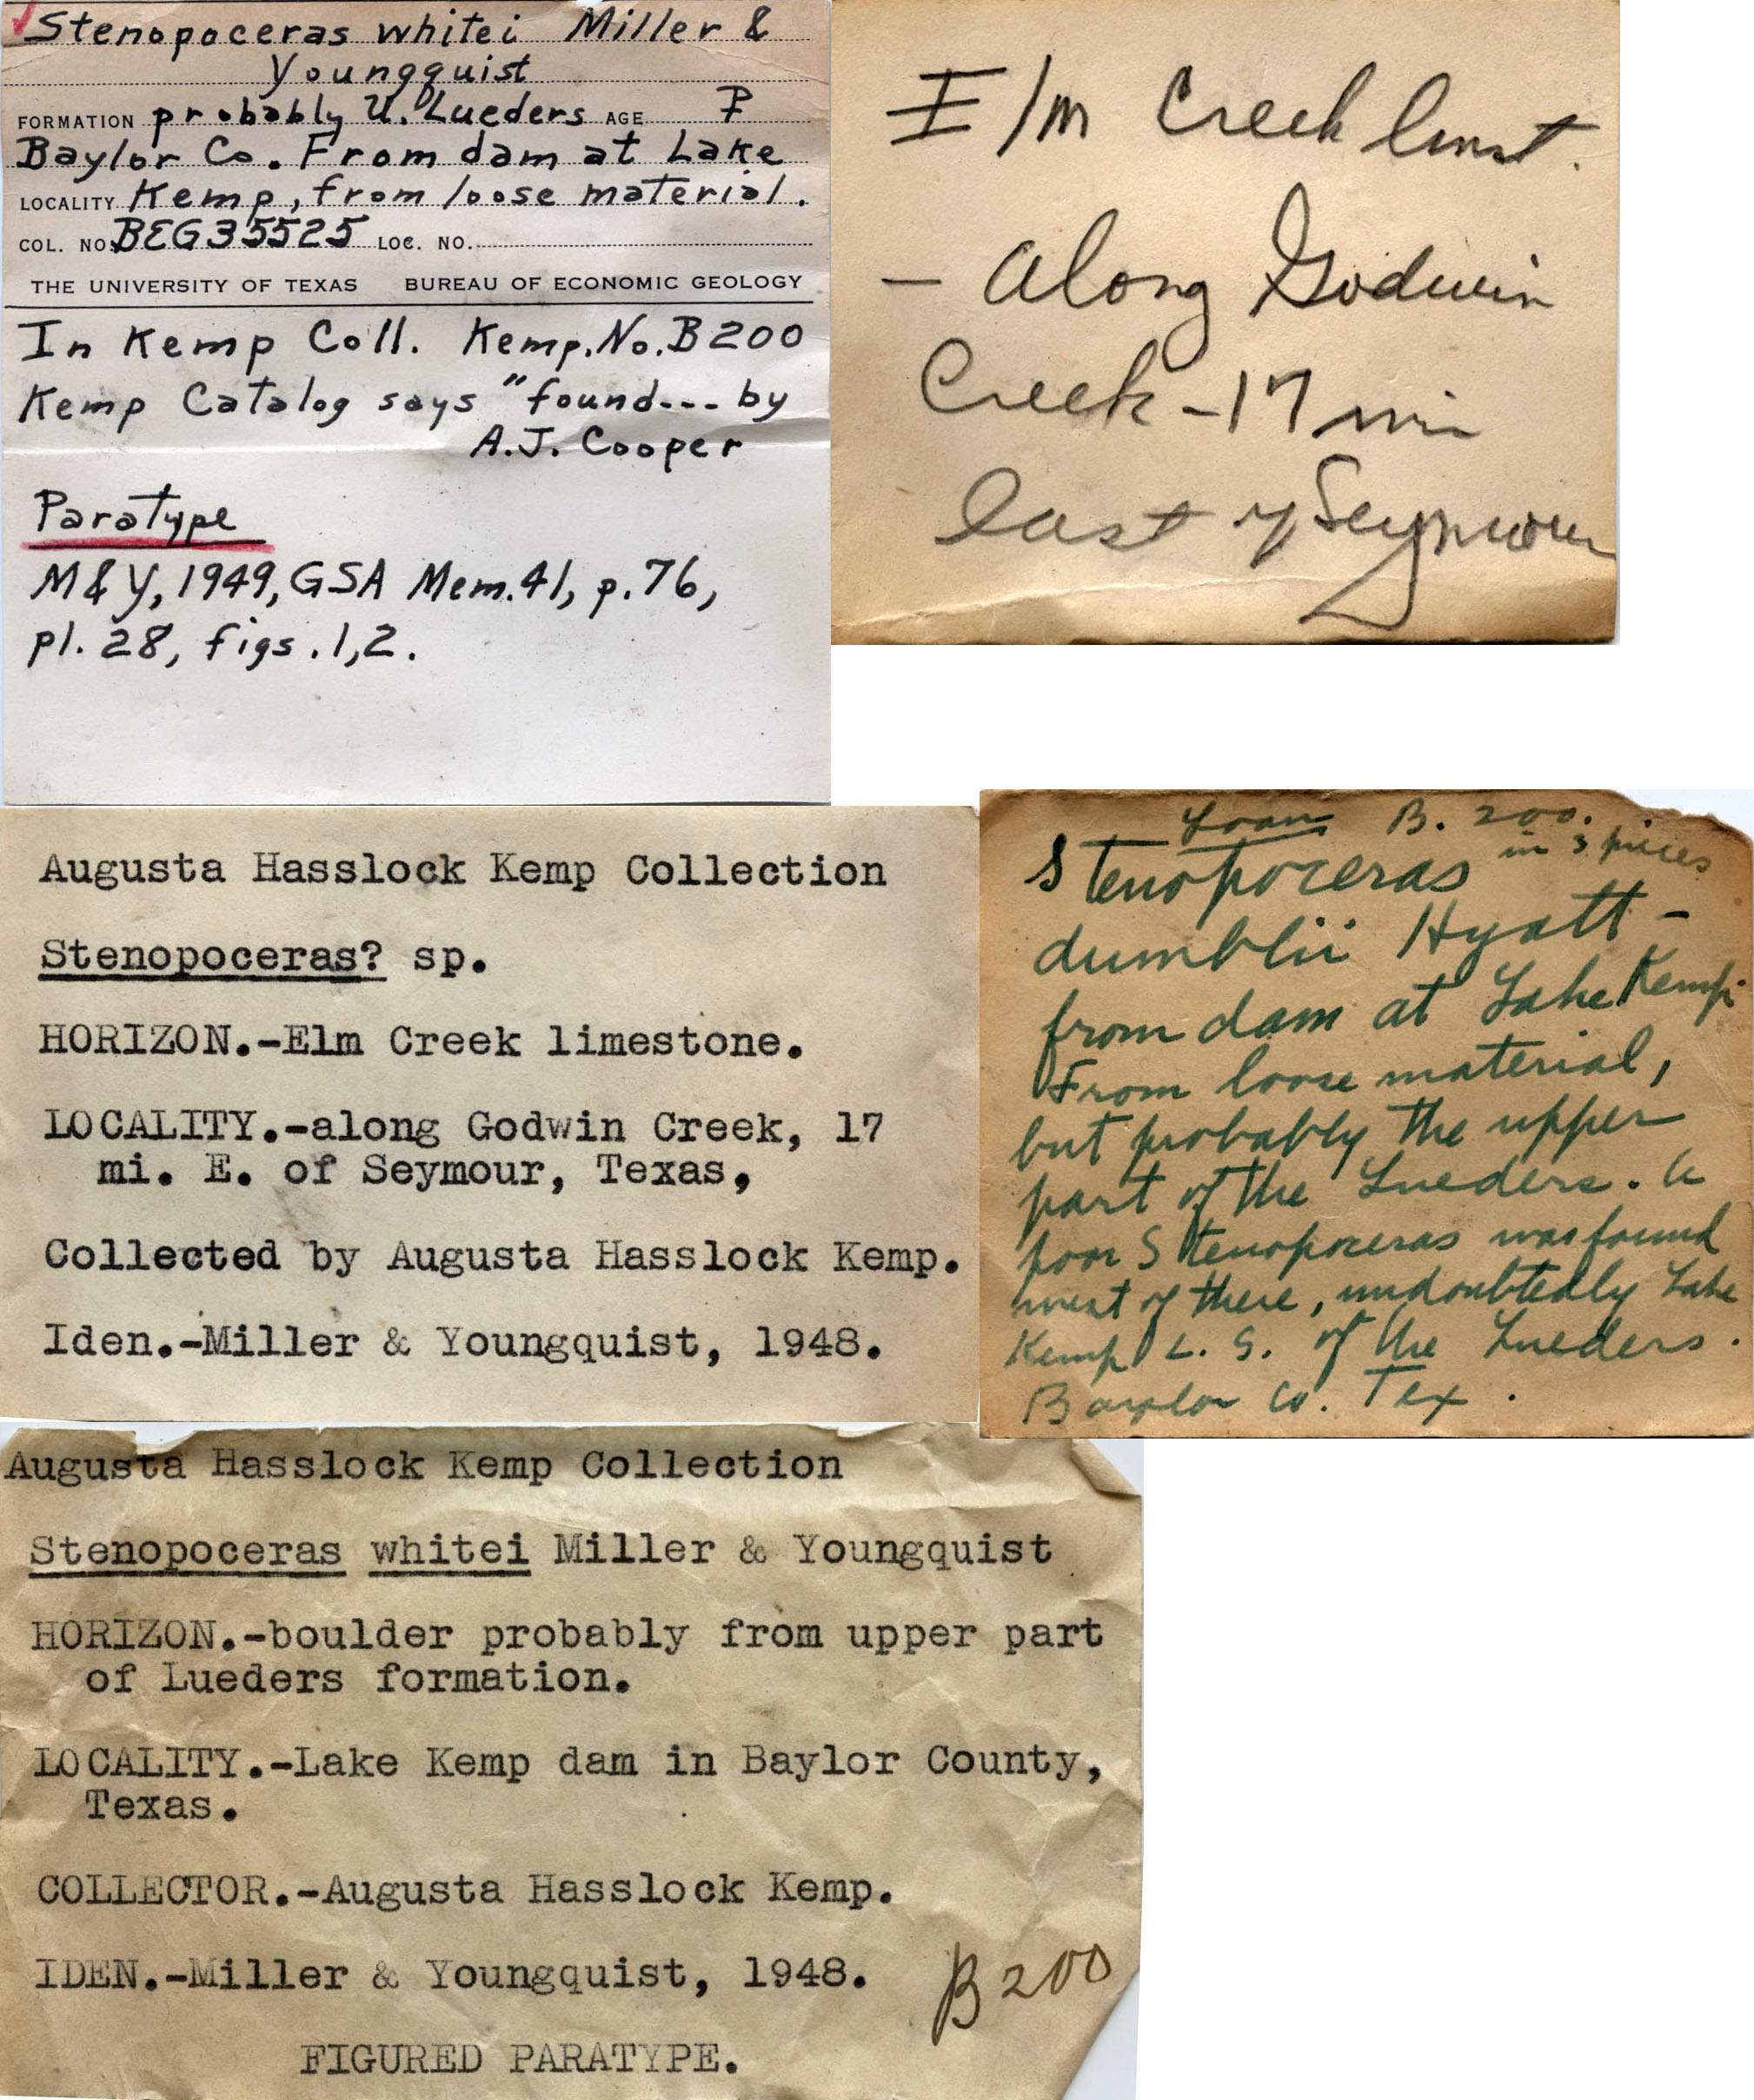 Stenopoceras whitei Miller &
Youngquist
FORMATION probably U. Lueders AGE P
Baylor Co. From dam at Lake
LOCALITY Kemp, from loose material.
COL. NO. BEG35525 LOC. NO.
THE UNIVERSITY OF TEXAS BUREAU OF ECONOMIC GEOLOGY
In Kemp Coll. Kemp. No. B200
Kemp Catalog says "found--- by
A.J. Cooper
Paratype
M & Y, 1949, GSA Mem. 41, p. 76,
pl. 28, figs. 1,2.
Elm Creek lmst.
- along Godwin
Creek - 17 mi
East of Seymour
Augusta Hasslock Kemp Collection
Stenopoceras? sp.
HORIZON.-Elm Creek limestone.
LOCALITY.-along Godwin Creek, 17
mi. E. of Seymour, Texas,
Collected by Augusta Hasslock Kemp.
Iden.-Miller & Youngquist, 1948.
Loan B. 200.
in 3 pieces
Stenopoceras
dumblii Hyatt -
from dam at Lake Kemp.
From loose material,
but probably the upper
part of the Lueders. A
poor Stenopoceras was found
west of there, undoubtedly Lake
Kemp L. S. of the Lueders.
Baylor Co. Tex.
Augusta Hasslock Kemp Collection
Stenopoceras whitei Miller & Youngquist
HORIZON.-boulder probably from upper part
of Lueders formation.
LOCALITY.-Lake Kemp dam in Baylor County,
Texas.
COLLECTOR.-Augusta Hasslock Kemp.
IDEN.-Miller & Youngquist, 1948.
B200
FIGURED PARATYPE.